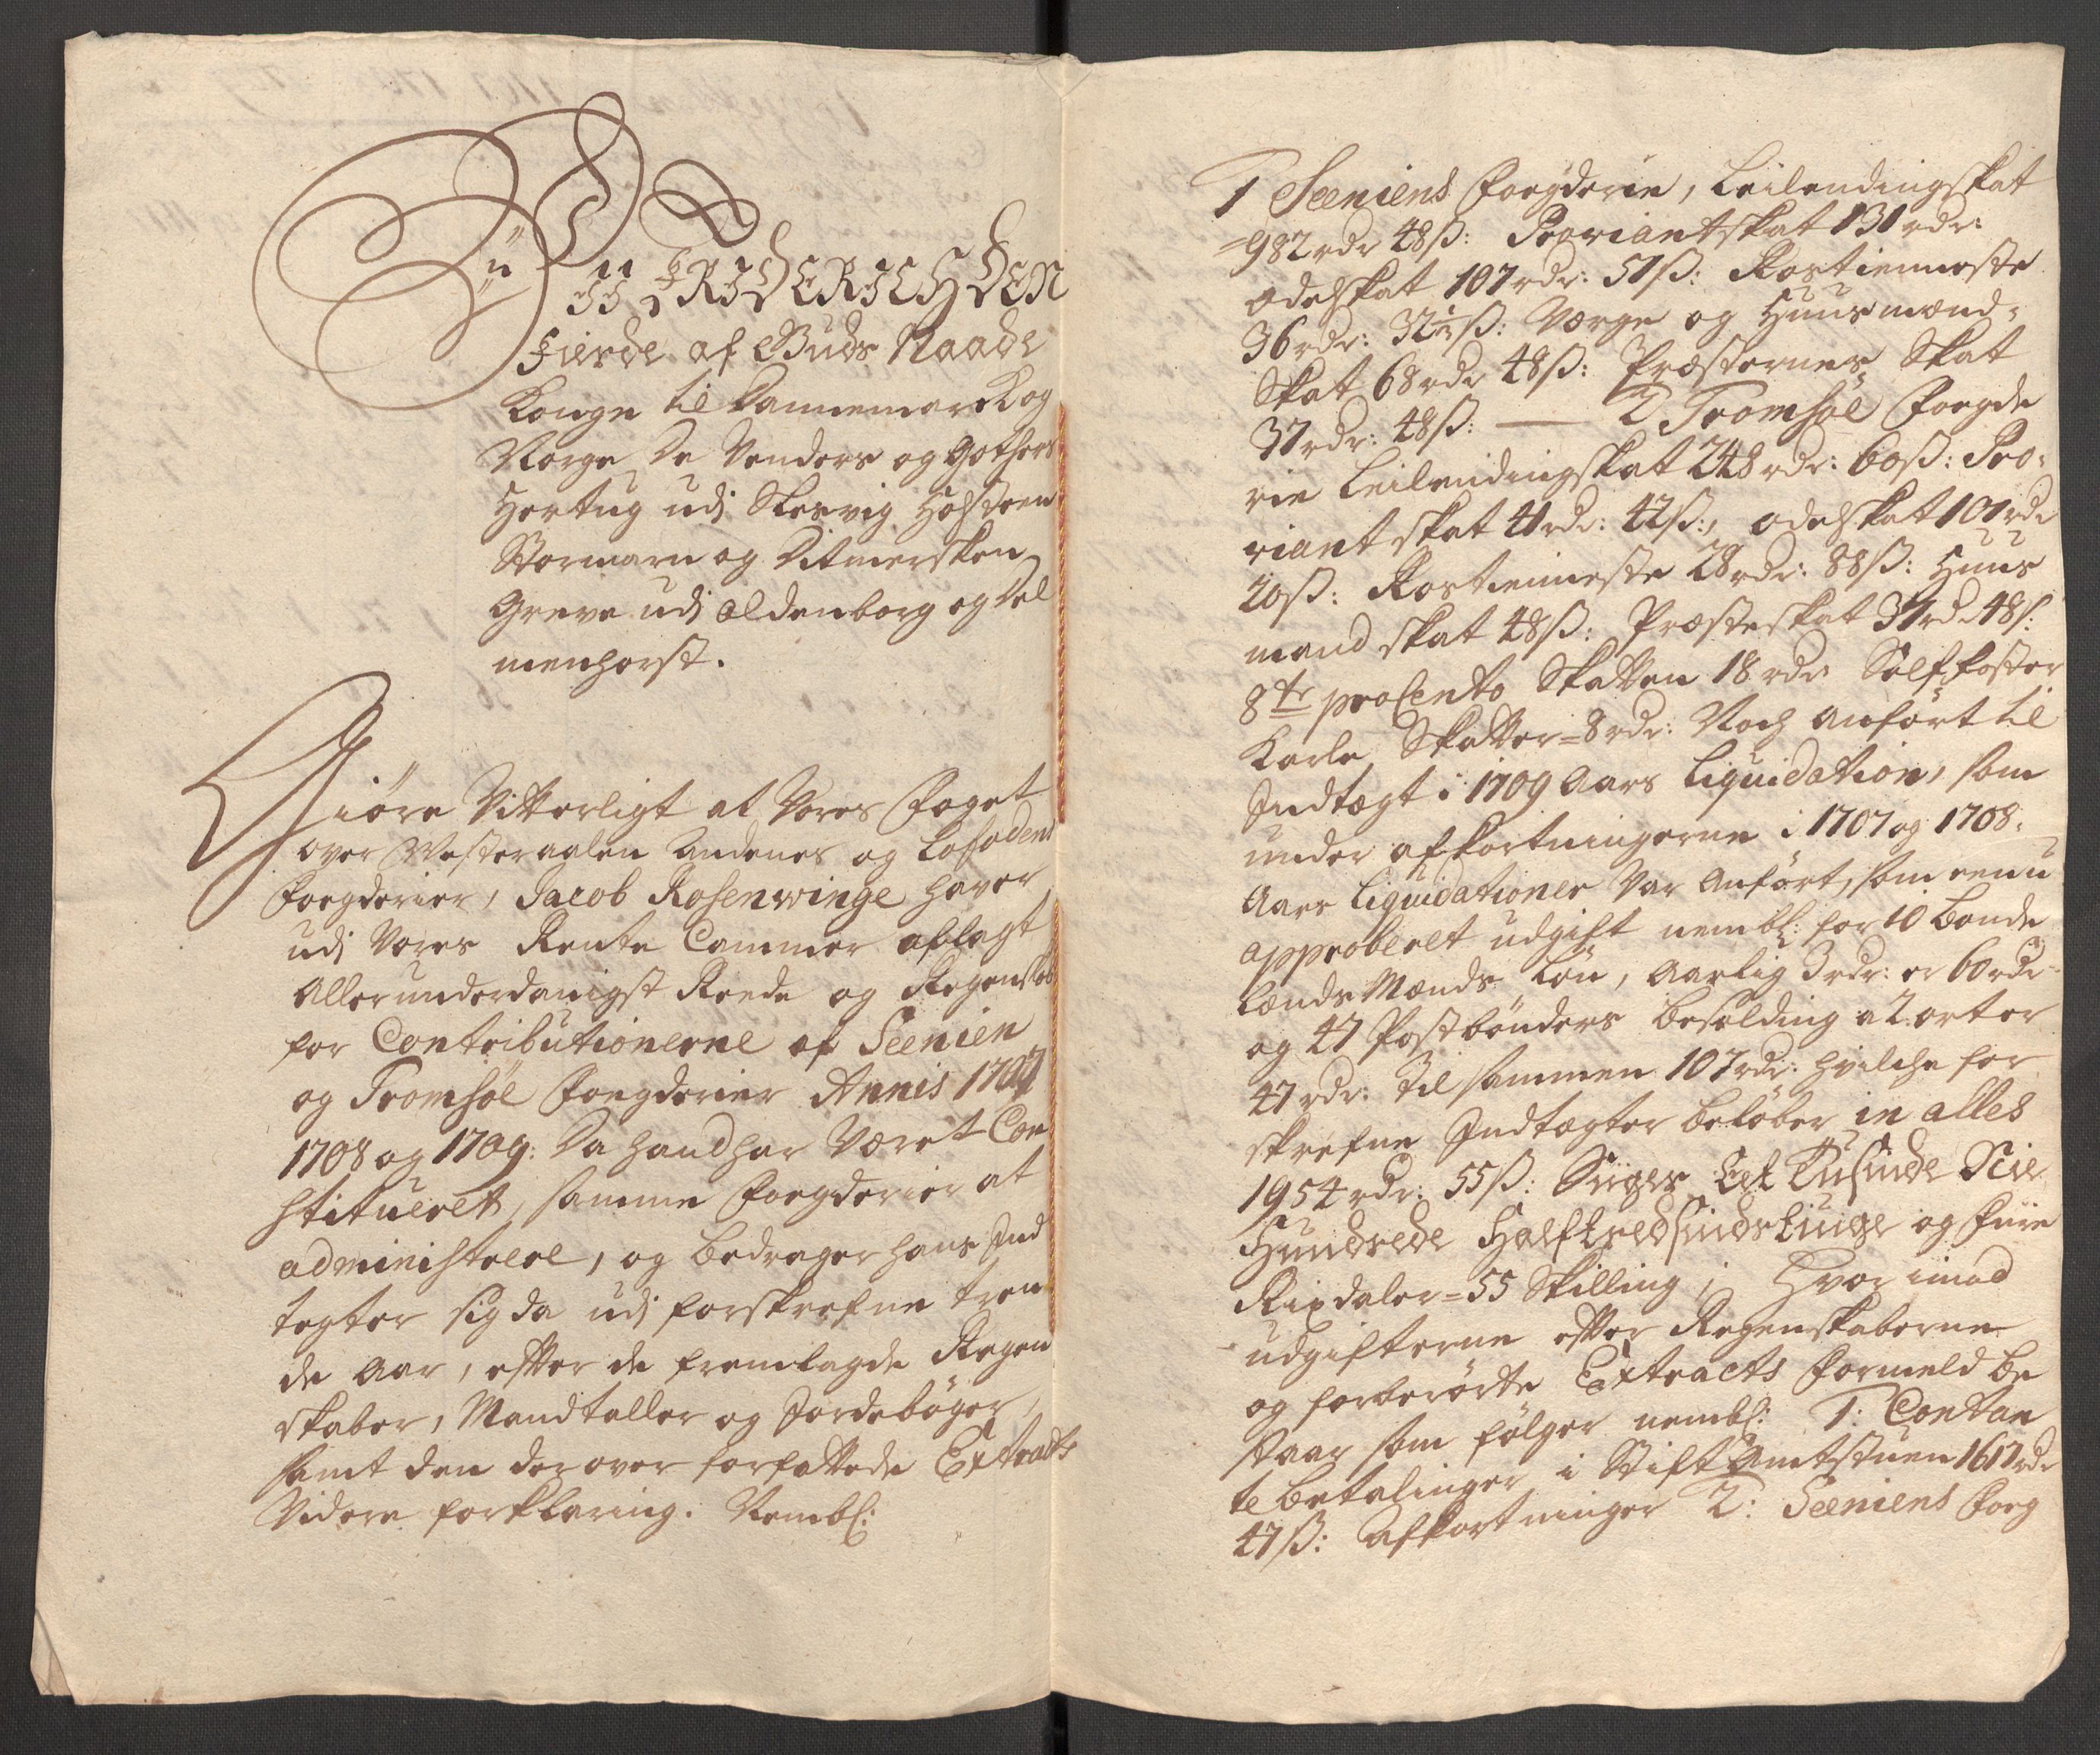 Wii FRIDERICH DEN
Fierde af Guds Naade
Konge til Dannemarck og
Norge De Venders og Gothers
Hertug udj Slesvig Holsteen
Stormarn og Ditmersken
Greve udj Oldenborg og Del
menhorst.
Giöre Vitterligt at Vores Foget
over Westeraalen Andenes og Lofodens
Fogderier, Jacob Rosenwinge haver
udj Vores Rente Cammer aflagt
Allerunderdanigst Reede og Regenskab
for Contributionerne af Seenien
og Tromsöe Fogderier Annis 1707
1708 og 1709: Da hand har Været Con
stitueret, samme Fogderier at
administrere, og bedrager hans Ind
tegter sig da udj forskrefne tren
de Aar, effter de fremlagde Regen
skaber, Mandtaller og Jordebøger,
samt den derover forfattede Extracts
Videre forklaring. Nembl:
1 Seeniens Fogderie, Leilendingskat
=982 rdr 48ß: Proviantskat 131 rdr:
Odelskat 107 rdr: 51ß: Rostienneste
36 rdr: 32½ß: Verge og Huusmænd=
Skat 68 rdr 48ß: Præsternes Skat
37 rdr: 48ß: — 2 Tromsöe Fogde
rie Leilendingskat 248 rdr: 60ß: Pro=
viantskat 41 rdr: 42ß:, Odelskat 101 rdr
20ß: Rostienneste 28 rdr: 88ß: Huus
mand skat 48ß: Præsteskat 37 rdr 48ß:
8te pro Cento Skatten 18 rdr Sølffoster
Karle Skatter=8 rdr: Noch Anført til
Indtægt i 1709 Aars Liquidation, som
under afkortningerne i 1707 og 1708.
Aars Liquidationer Var Anført, som een u
approberet udgift nembl: for 10 Bonde
Lænds Mænds Løn, Aarlig 3 rdr: er 60 rdr
og 47 Postbønders besolding a 2 ort er
47 rdr: Tilsammen 107 rdr: hvilche for
skrefne Indtægter beløber in alles
1954 rdr: 55ß: Siiger Eet Tusinde Nie
Hundrede Halftredsindstiuge og Fiire
Rixdaler=55 Skilling; Hvor imod
udgifterne effter Regenskaberne
og forberørte Extracts Formeld be
staar som følger nembl: 1: Contan
te betalinger i Stift Amtstuen 1617 rdr
47ß: Afkortninger 2: Seeniens Fog